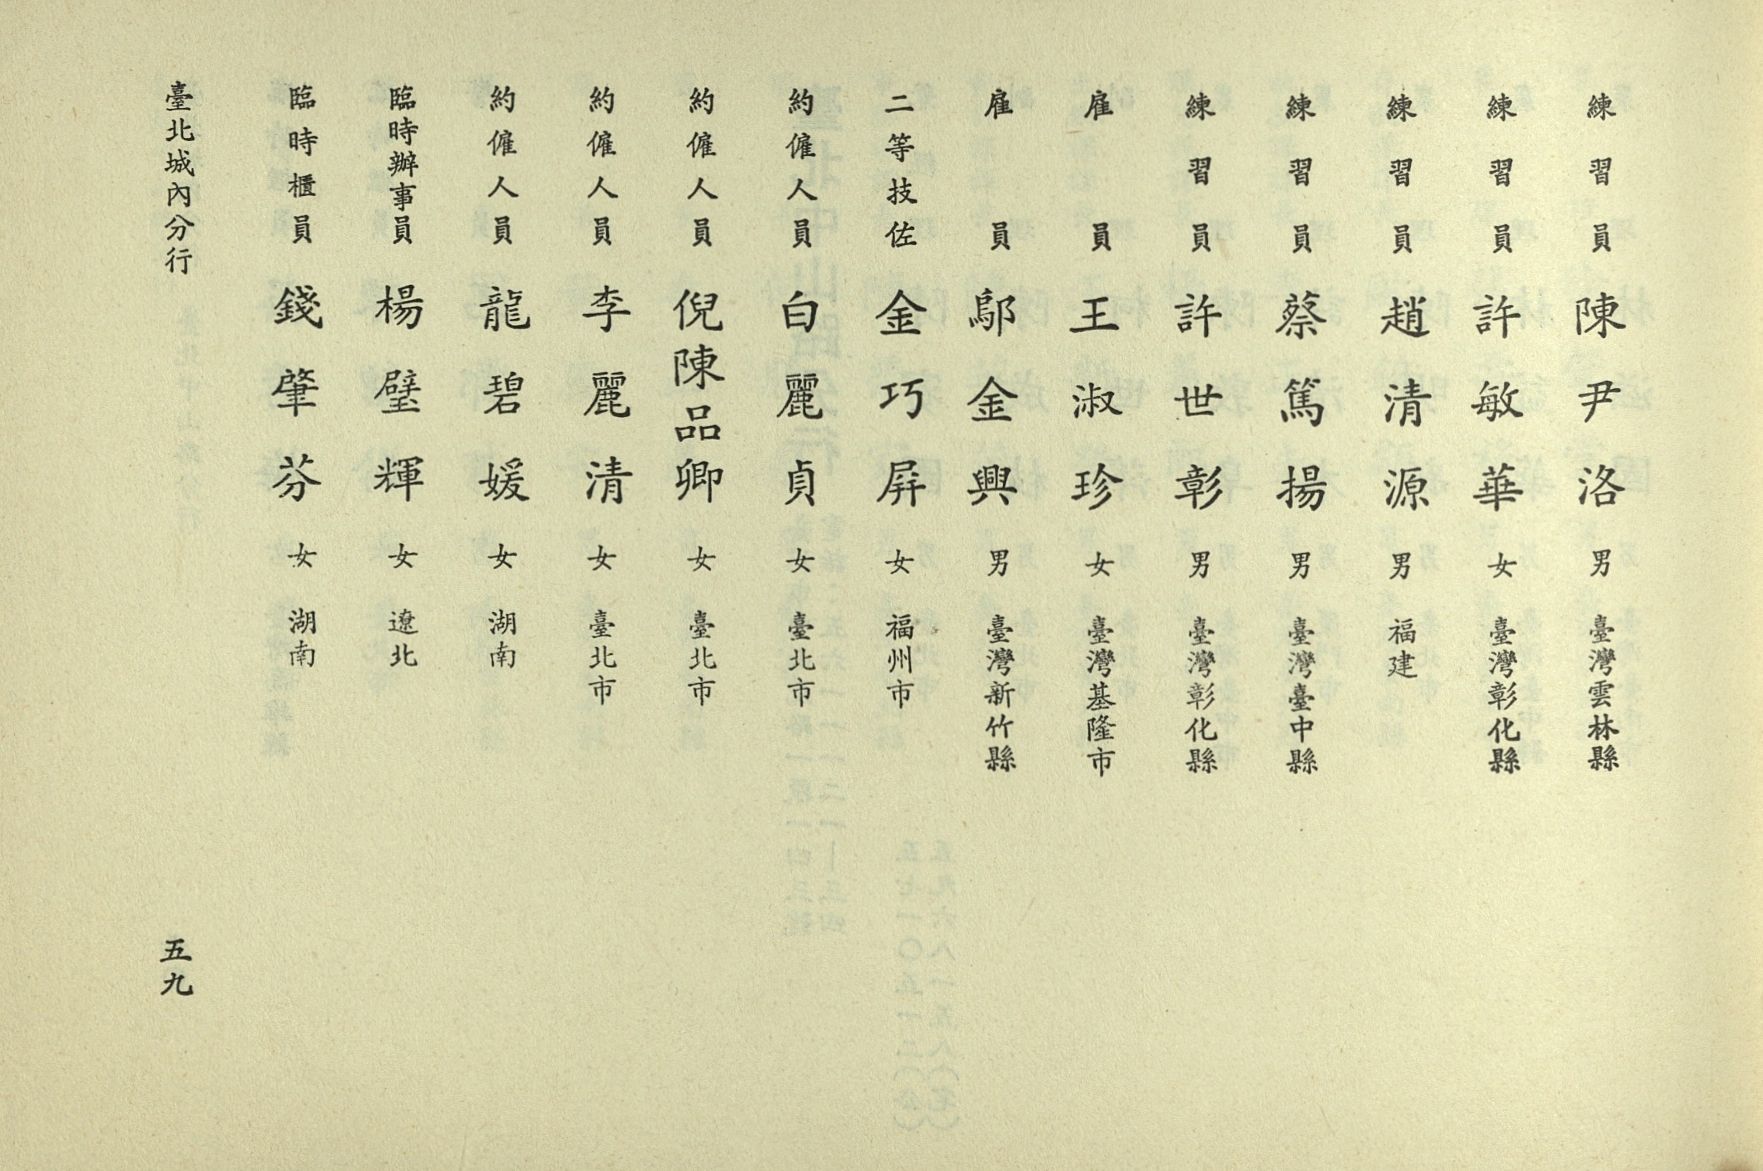 練習員 陳尹洛 男 臺灣雲林縣
練習員 許敏華 女 臺灣彰化縣
練習員 趙清源 男 福建
練習員 蔡篤揚 男 臺灣臺中縣
練習員 許世彰 男 臺灣彰化縣
雇員 王淑珍 女 臺灣基隆市
雇員 鄔金興 男 臺灣新竹縣
二等技佐 金巧屏 女 福州市
約僱人員 白麗貞 女 臺北市
約僱人員 倪陳品卿 女 臺北市
約僱人員 李麗清 女 臺北市
約僱人員 龍碧媛 女 湖南
臨時辦事員 楊璧輝 女 遼北
臨時櫃員 錢肇芬 女 湖南
臺北城內分行 五九